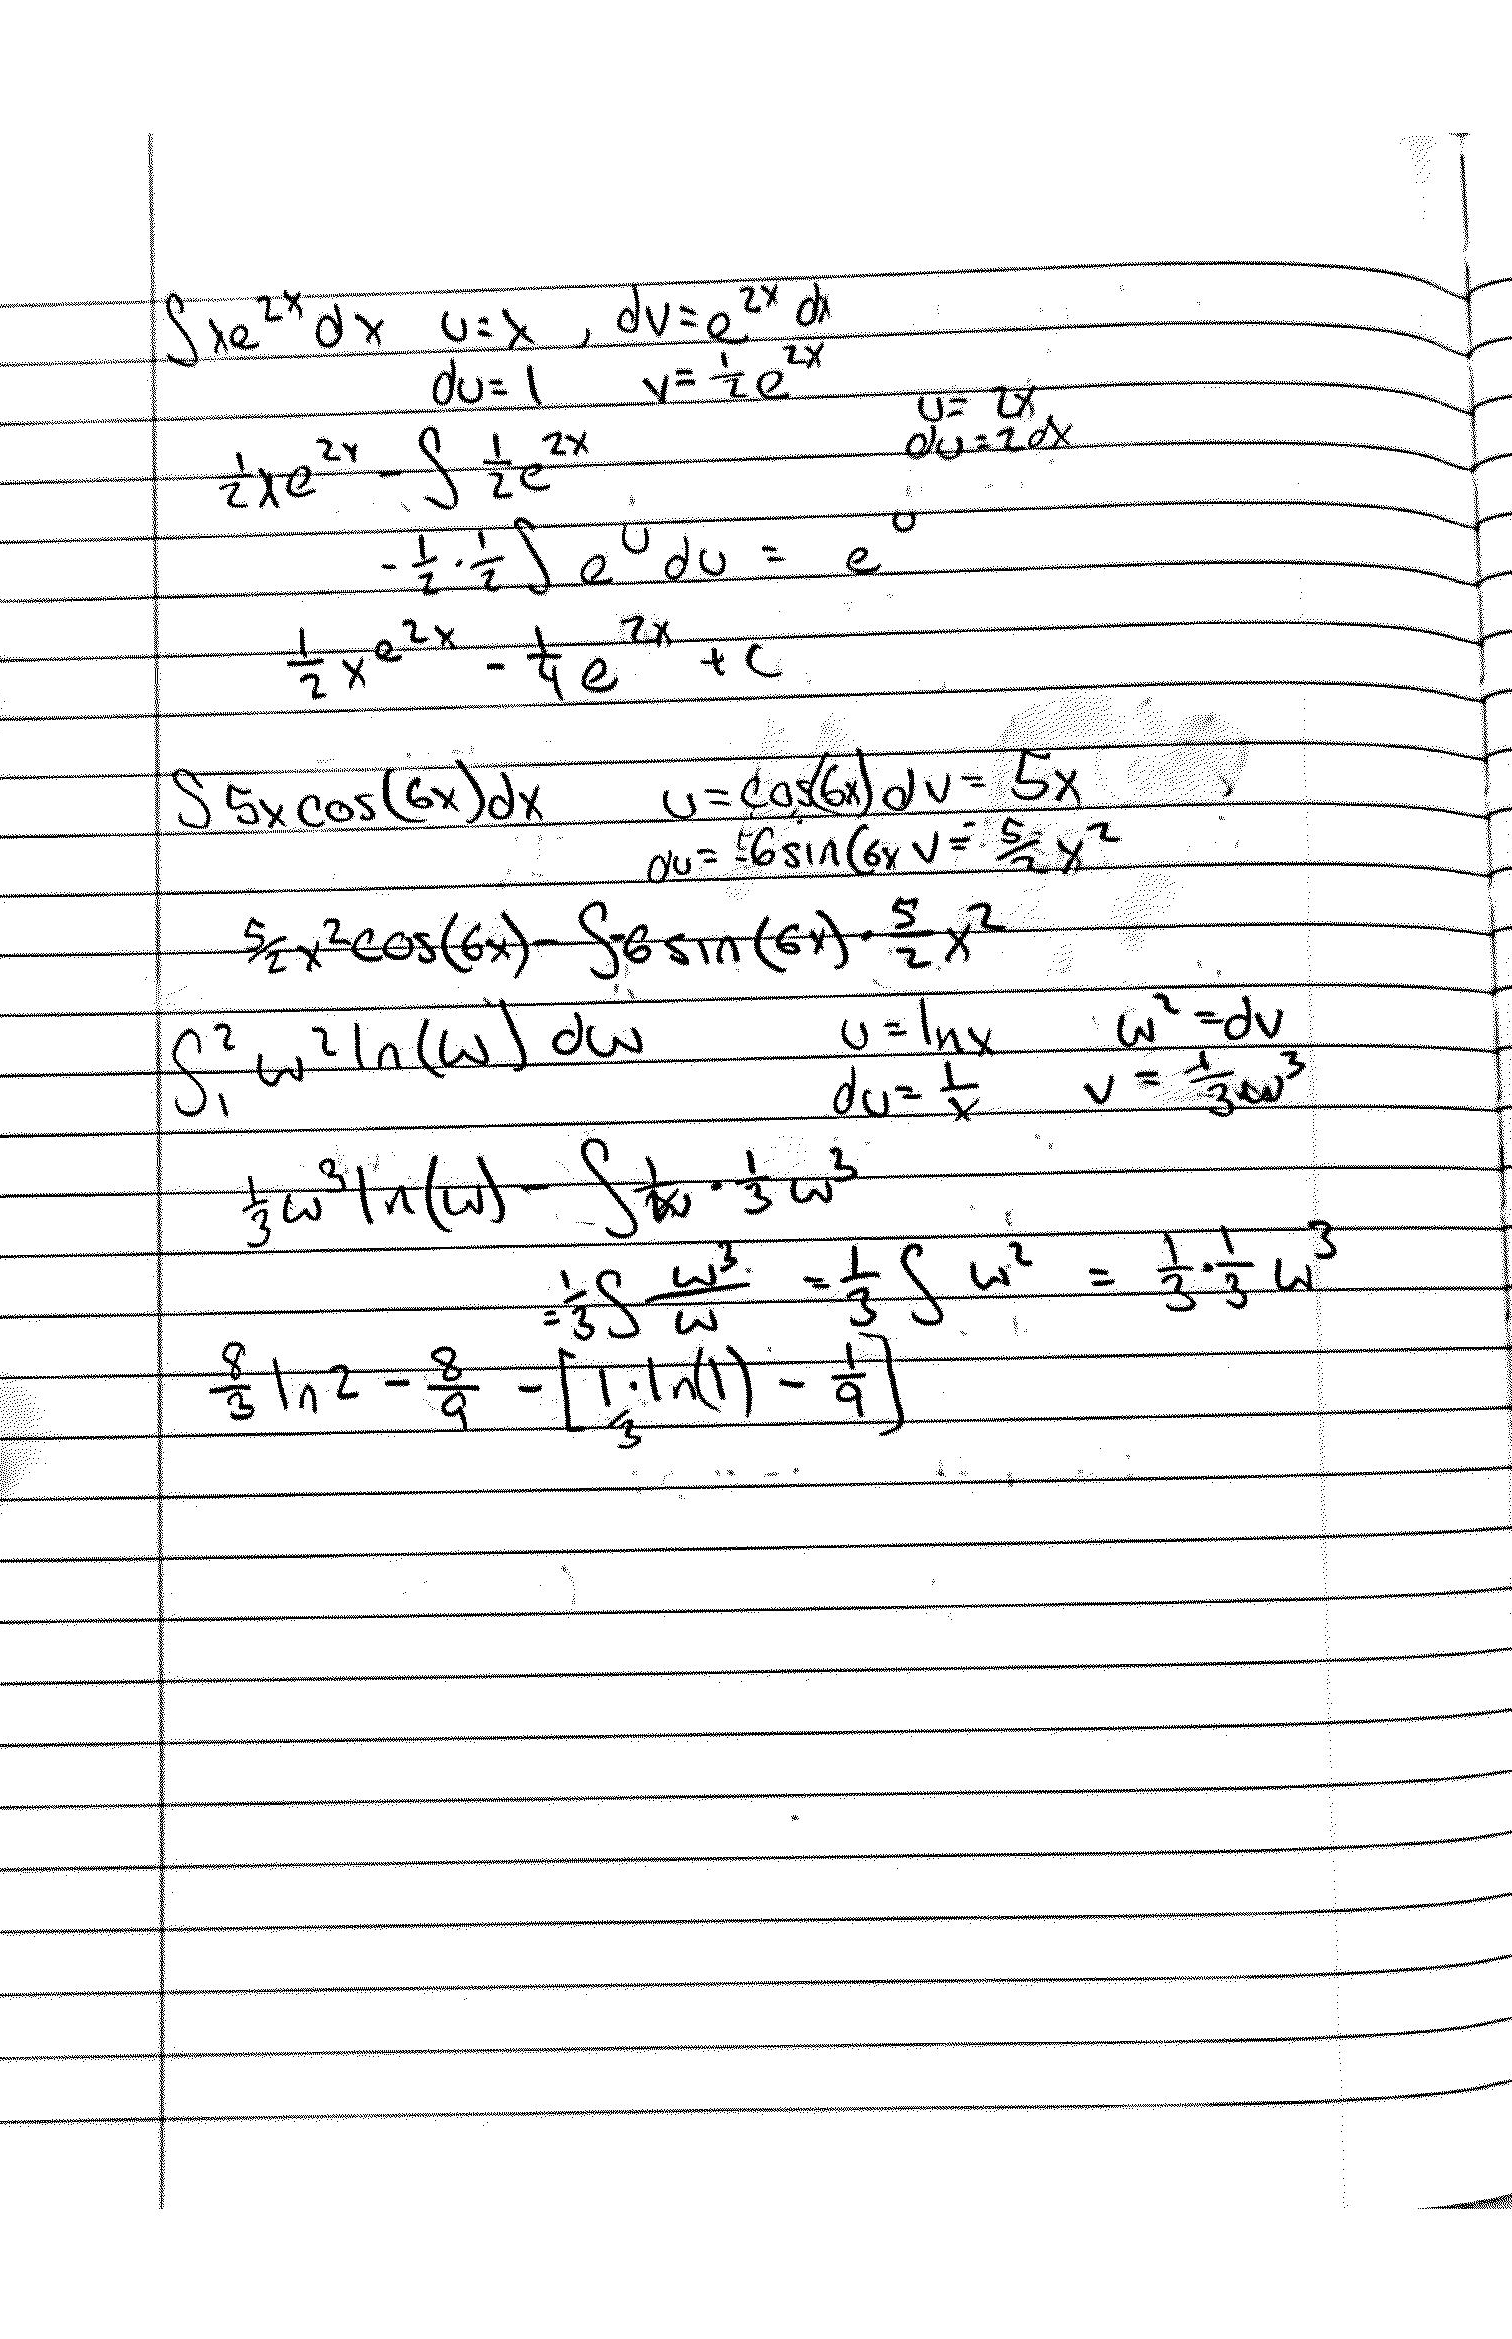 ∫xe^{2x} dx u=x , dv=e^{2x} dx
du=1 v=½e^{2x}
u= 2x
du=2dx
½xe^{2x} - ∫ ½e^{2x}
-½·½∫ e^u du = e^u
½xe^{2x} - ¼e^{2x} + C
∫5xcos(6x)dx u=cos(6x) dv= 5x
du= -6sin(6x v= 5/2 x²
5/2 x²cos(6x) - ∫-6sin(6x)·5/2 x²
∫₁² w²ln(w) dw u=lnx w²=dv
du=1/x v=⅓w³
⅓w³ln(w) - ∫1/w·⅓w³
=⅓∫ w³/w =⅓∫ w² = ⅓·⅓w³
8/3 ln2 - 8/9 - [1/3·ln(1) - 1/9]